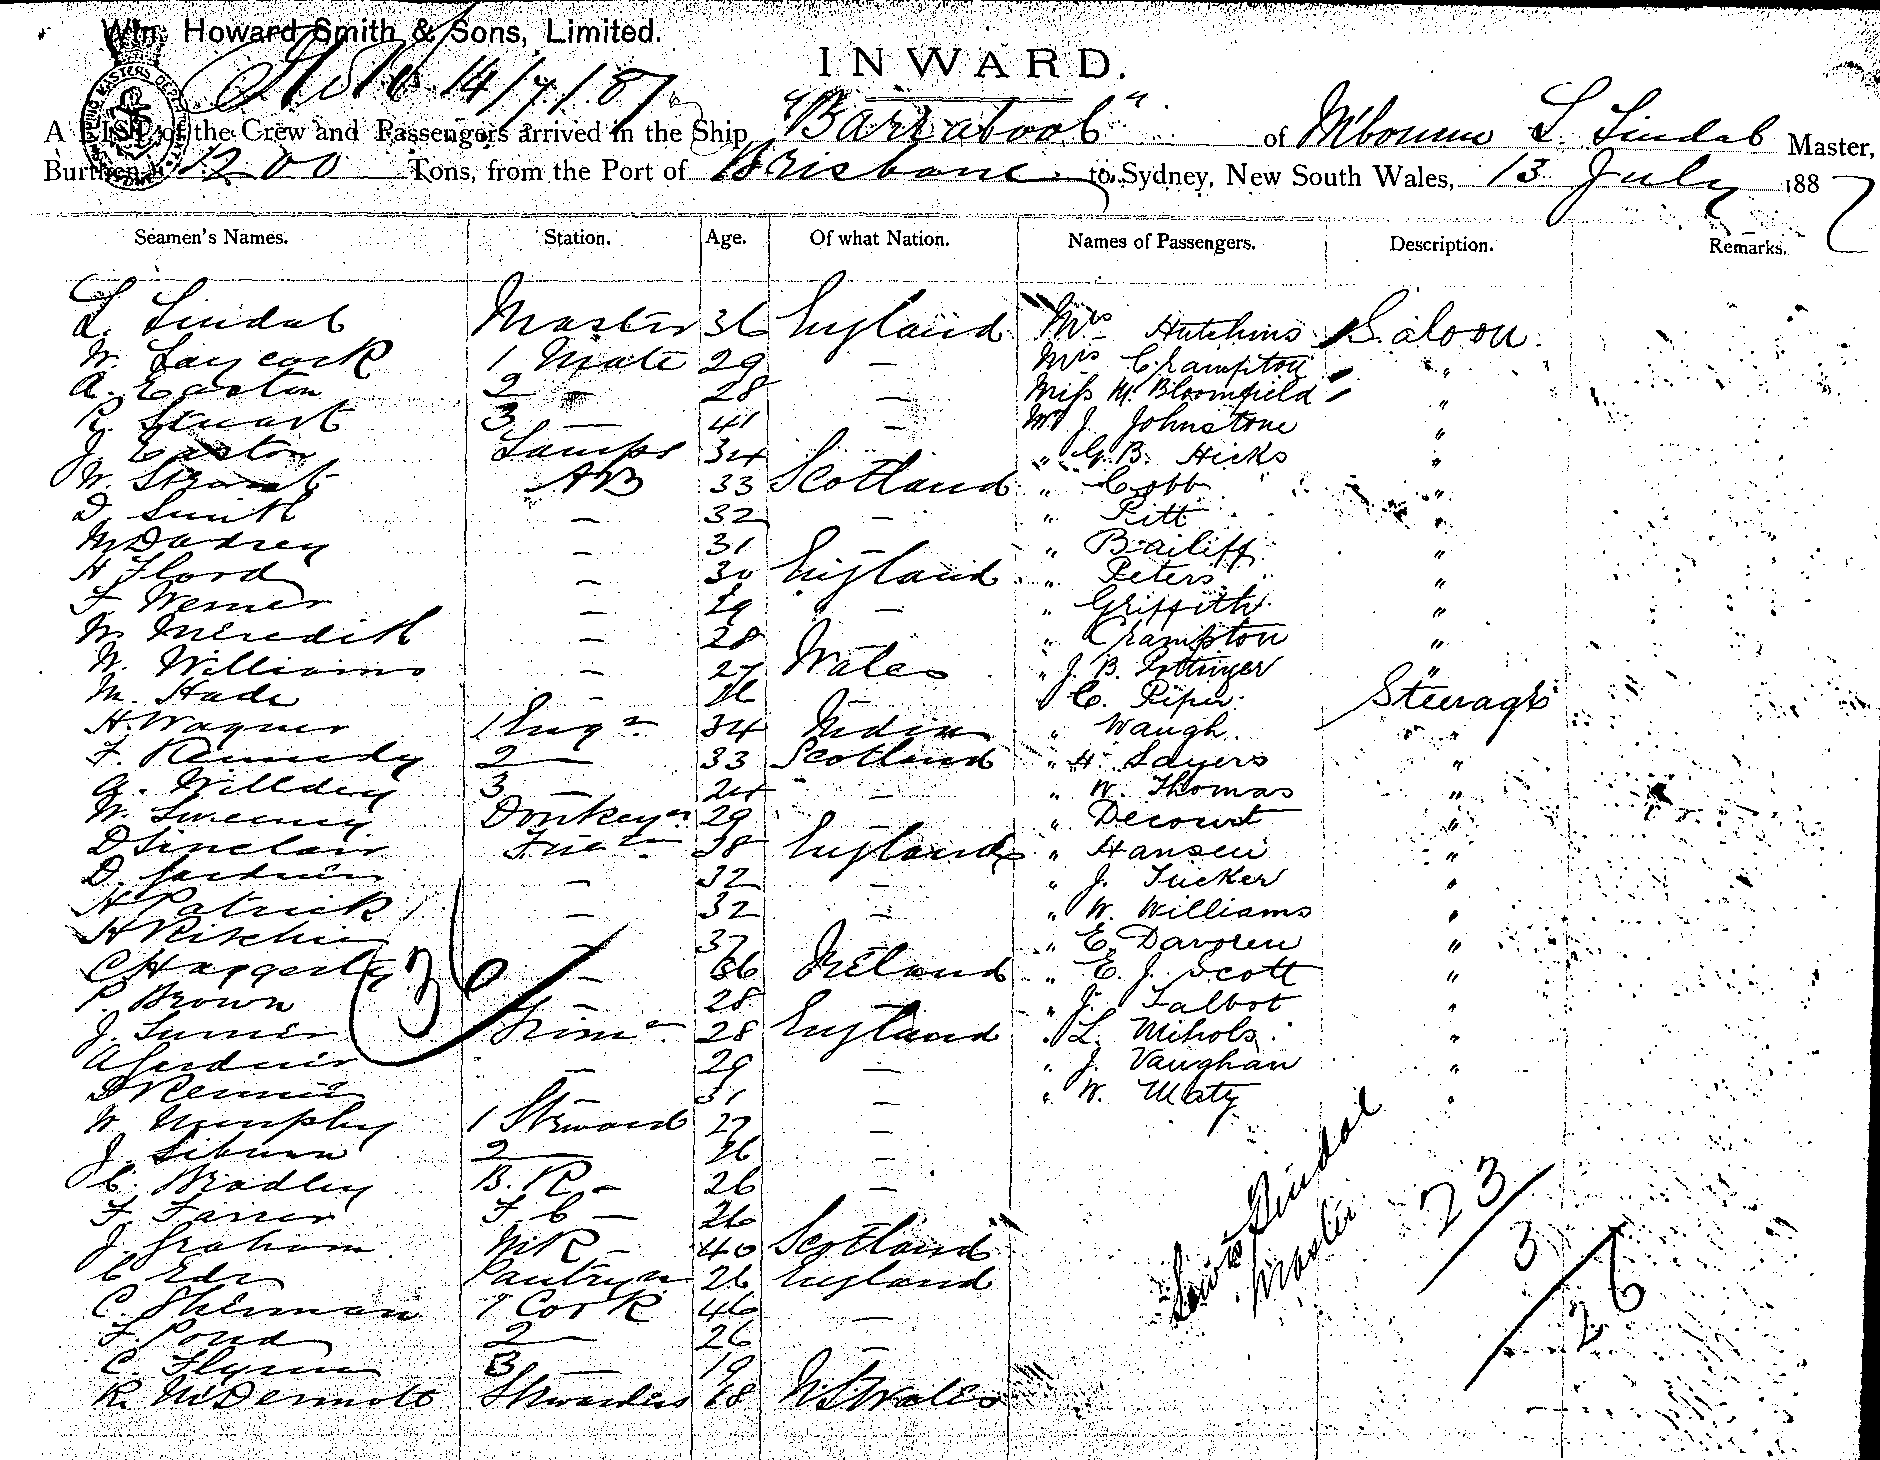 Wm. Howard Smith & Sons, Limited.
14/7/87
INWARD.
A LIST of the Crew and Passengers arrived in the Ship "Barrabool" of M'bourne L. Lindal Master,
Burthen 1200 Tons, from the Port of Brisbane to Sydney, New South Wales, 13 July 1887
Seamen's Names. Station. Age. Of what Nation. Names of Passengers. Description. Remarks.
L. Lindal Master 36 England Mrs Hutchins Saloon.
W. Laycock 1 Mate 29 — Mrs Crampton "
A. Easton 2 — 28 — Miss M. Bloomfield "
R. Stuart 3 — 41 — Mr J. Johnstone "
J. Easton Lamps 34 " G. B. Hicks "
W. Strout AB 33 Scotland " Cobb "
D. Smith — 32 — " Pitt "
— 31 — " Bailiff "
H Flord — 30 England " Peters "
F Werner — 29 — " Griffith "
W. Meredith — 28 " Crampton "
W. Williams — 27 Wales " J. B. Pottinger "
M. Hade — 26 — " C. Piper Steerage
H. Wagner 1 Engr 34 India " Waugh "
F. Kennedy 2 — 33 Scotland " H. Sayers "
G. Willdey 3 — 24 — " W. Thomas "
W. Sweeney Donkeyn 29 — " Decourt "
D Sinclair Firen 38 England " Hansen "
D. Gardner — 32 — " J. Tucker "
H Patrick — 32 — " W. Williams "
H Ritchie — 37 " E. Davoren "
C Haggerty — 36 Ireland " E. J. Scott "
P. Brown — 28 — " J. Talbot "
J. Turner Trimr 28 England " L. Nihols "
A Gardner — 29 — " J. Vaughan "
D Rennie — 31 — " W. Maty "
W. Murphy 1 Steward 27 —
J. Liburn 2 — 26 —
C. Bradley B. R — 26 —
F. Farrer F C — 26
J. Graham MR — 40 Scotland
C. Edr Pantryn 26 England
C. Sherman 1 Cook 46 —
F. Pond 2 — 26
C. Flynn 3 — 19
R. McDermott Stewardess 48 NSWales
36
Louis Lindal
Master
23
3
26